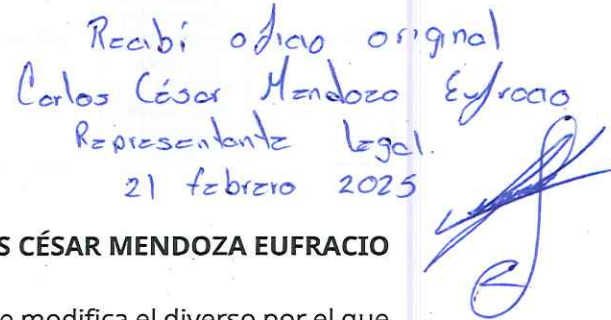 Recibí oficio original
Carlos César Mendoza Eufracio
Representante Legal.
21 febrero 2025
S CÉSAR MENDOZA EUFRACIO
e modifica el diverso por el que